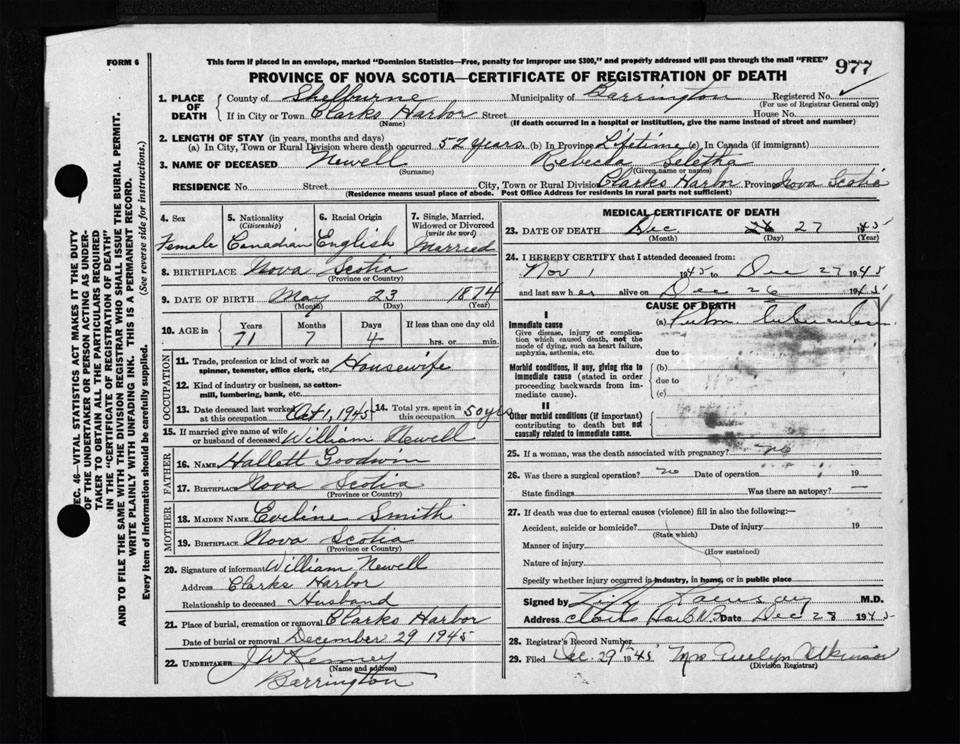 FORM 6
This form if placed in an envelope, marked "Dominion Statistics—Free, penalty for improper use $300," and properly addressed will pass through the mail "FREE"
977
PROVINCE OF NOVA SCOTIA—CERTIFICATE OF REGISTRATION OF DEATH
1. PLACE OF DEATH
County of Shelburne Municipality of Barrington Registered No.
(For use of Registrar General only)
If in City or Town Clarks Harbor Street House No.
(Name) (If death occurred in a hospital or institution, give the name instead of street and number)
2. LENGTH OF STAY (in years, months and days)
(a) In City, Town or Rural Division where death occurred 52 years (b) In Province Lifetime (c) In Canada (if immigrant)
3. NAME OF DECEASED Newell Rebecka Seletha
(Surname) (Given name or names)
RESIDENCE No. Street City, Town or Rural Division Clarks Harbor Province Nova Scotia
(Residence means usual place of abode. Post Office Address for residents in rural parts not sufficient)
4. Sex Female
5. Nationality (Citizenship) Canadian
6. Racial Origin English
7. Single, Married, Widowed or Divorced (write the word) Married
8. BIRTHPLACE Nova Scotia
(Province or Country)
9. DATE OF BIRTH May 23 1874
(Month) (Day) (Year)
10. AGE in Years Months Days If less than one day old
71 7 4 hrs. or min.
OCCUPATION
11. Trade, profession or kind of work as spinner, teamster, office clerk, etc. Housewife
12. Kind of industry or business, as cotton-mill, lumbering, bank, etc.
13. Date deceased last worked at this occupation Oct 1, 1945 14. Total yrs. spent in this occupation 50 yrs
15. If married give name of wife or husband of deceased William Newell
FATHER
16. NAME Hallett Goodwin
17. BIRTHPLACE Nova Scotia
(Province or Country)
MOTHER
18. MAIDEN NAME Eveline Smith
19. BIRTHPLACE Nova Scotia
(Province or Country)
20. Signature of informant William Newell
Address Clarks Harbor
Relationship to deceased Husband
21. Place of burial, cremation or removal Clarks Harbor
Date of burial or removal December 29 1945
22. UNDERTAKER J W Kenney
(Name and address)
Barrington
MEDICAL CERTIFICATE OF DEATH
23. DATE OF DEATH Dec 26 27 1945
(Month) (Day) (Year)
24. I HEREBY CERTIFY that I attended deceased from:
Nov 1 1945 to Dec 27 1945
and last saw her alive on Dec 26 1945
CAUSE OF DEATH
I
Immediate cause (a) Pulm. tuberculosis
Give disease, injury or complication which caused death, not the mode of dying, such as heart failure, asphyxia, asthenia, etc.
due to
Morbid conditions, if any, giving rise to immediate cause (stated in order proceeding backwards from immediate cause).
(b)
due to
(c)
II
Other morbid conditions (if important) contributing to death but not causally related to immediate cause.
25. If a woman, was the death associated with pregnancy? No
26. Was there a surgical operation? no Date of operation 19
State findings Was there an autopsy? —
27. If death was due to external causes (violence) fill in also the following:—
Accident, suicide or homicide? Date of injury 19
(State which)
Manner of injury
(How sustained)
Nature of injury
Specify whether injury occurred in industry, in home, or in public place
Signed by M.D.
Address Clark's Date Dec 28 1945
28. Registrar's Record Number
29. Filed Dec. 29th 1945 Mrs Evelyn Atkinson
(Division Registrar)
SEC. 46—VITAL STATISTICS ACT MAKES IT THE DUTY
OF THE UNDERTAKER OR PERSON ACTING AS UNDER-
TAKER TO OBTAIN ALL THE PARTICULARS REQUIRED
IN THE "CERTIFICATE OF REGISTRATION OF DEATH"
AND TO FILE THE SAME WITH THE DIVISION REGISTRAR WHO SHALL ISSUE THE BURIAL PERMIT.
WRITE PLAINLY WITH UNFADING INK. THIS IS A PERMANENT RECORD.
Every item of information should be carefully supplied. (See reverse side for instructions.)